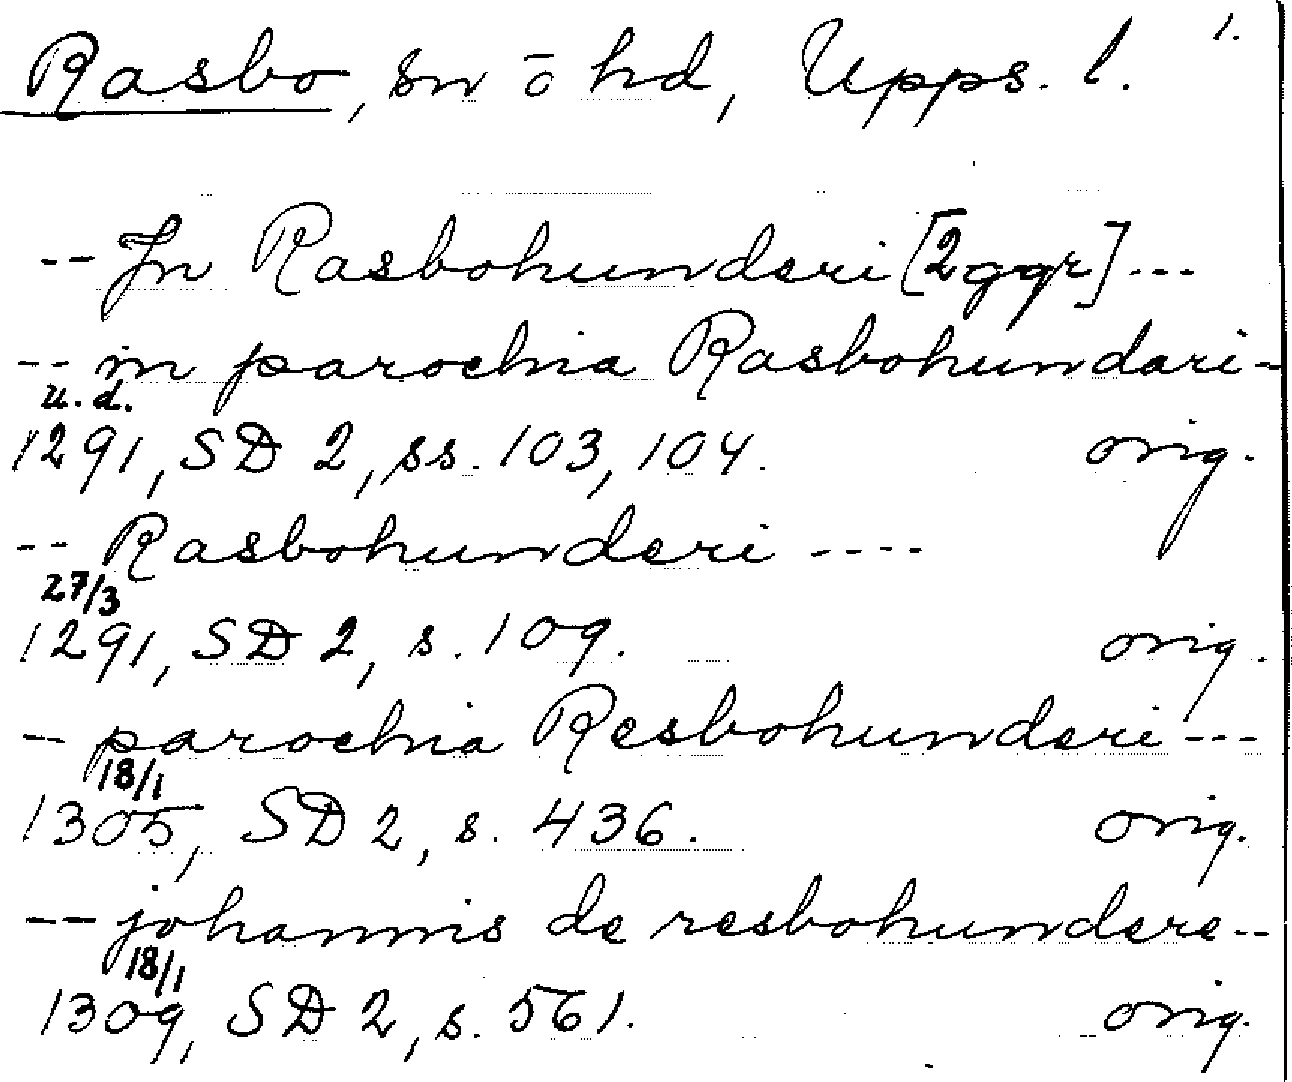 Rasbo, sn ō hd, Upps. l. 1.
-- Jn Rasbohunderi [2ggr] ---
-- in parochia Rasbohundari-
u. d.
1291, SD 2, ss. 103, 104. orig.
-- Rasbohunderi ----
27/3
1291, SD 2, s. 109. orig.
- parochia Resbohunderi ---
18/1
1305, SD 2, s. 436. orig.
-- johannis de resbohundere --
18/1
1309, SD 2, s. 561. orig.